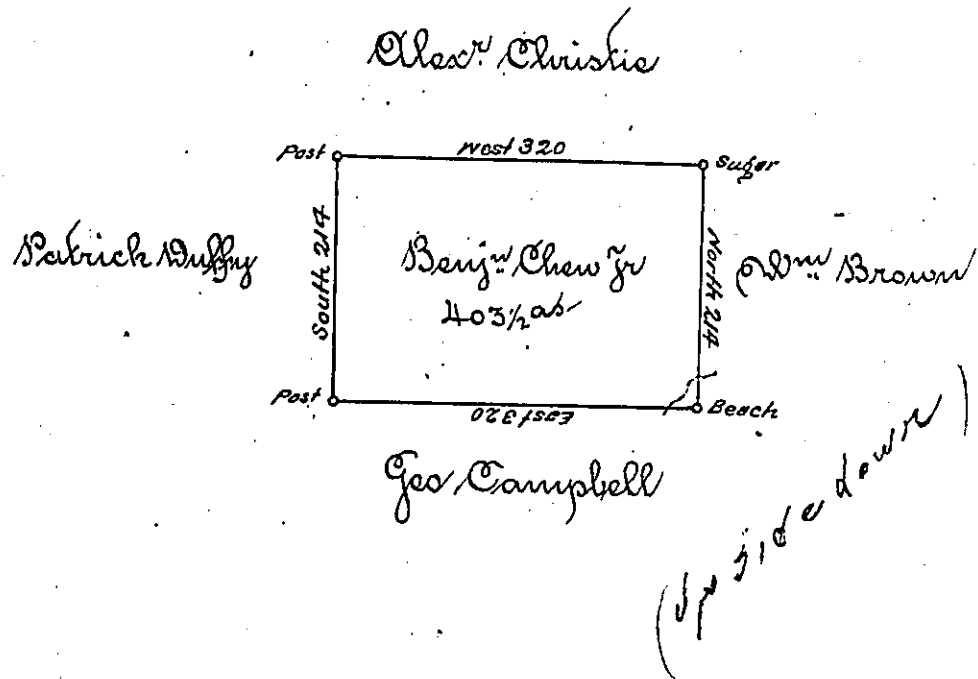 Alexr Christie
Post West 320 Suger
Patrick Duffy South 214 Benjn Chew Jr North 214 Wm Brown
403½ as
Post East 320 Beach
Geo Campbell
(Up side down)